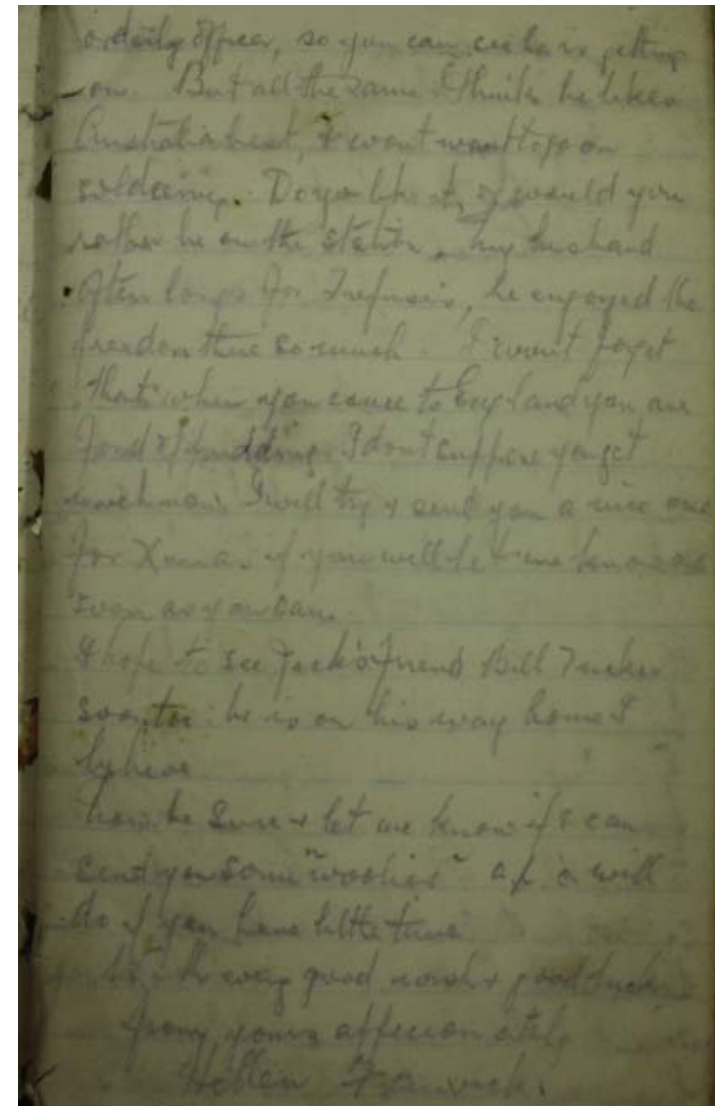 orderly officer, so you can see he is getting
on. But all the same I think he likes
Australia best, & wont want to go on
soldiering. Do you like it, or would you
rather be on the station, my husband
often longs for Trefusis, he enjoyed the
freedom there so much. I won't forget
that when you come to England you are
fond of pudding. I dont suppose you get
much now. I will try & send you a nice one
for Xmas. if you will let me know as
soon as you can.
I hope to see Jack's friend Bill Tucker
soon too: he is on his way home I
believe
Now be sure & let me know if I can
send you some "woolies" a p.c. will
do if you have little time
With every good wish & good luck
from yours affectionately
Hellen Fenwick.